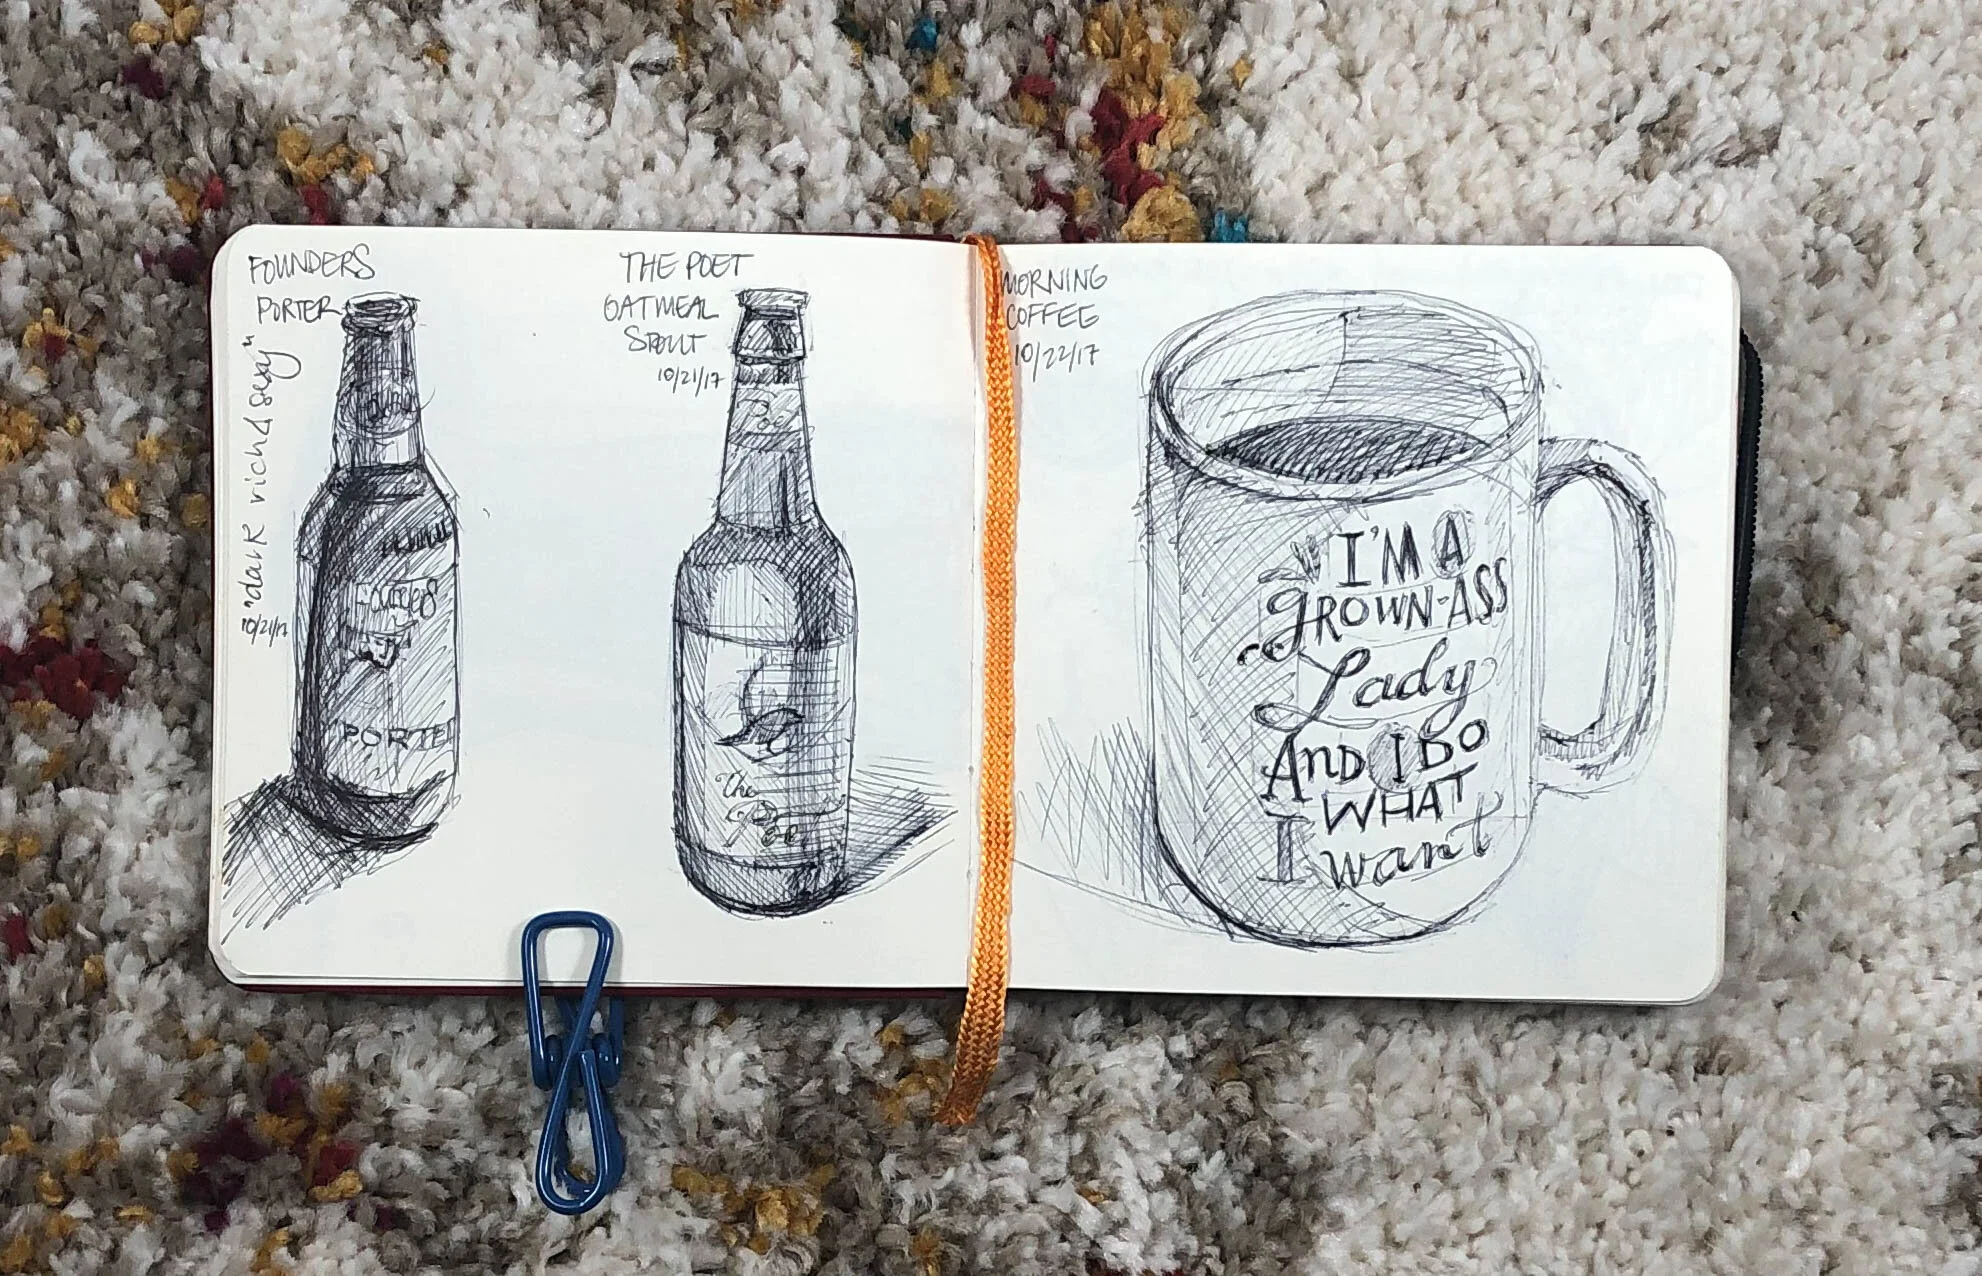 FOUNDERS
PORTER
"dark rich & sexy"
10/21/17
Founders
PORTER
THE POET
OATMEAL
STOUT
10/21/17
The
Poet
MORNING
COFFEE
10/22/17
I'M A
GROWN-ASS
Lady
AND I DO
WHAT
I want